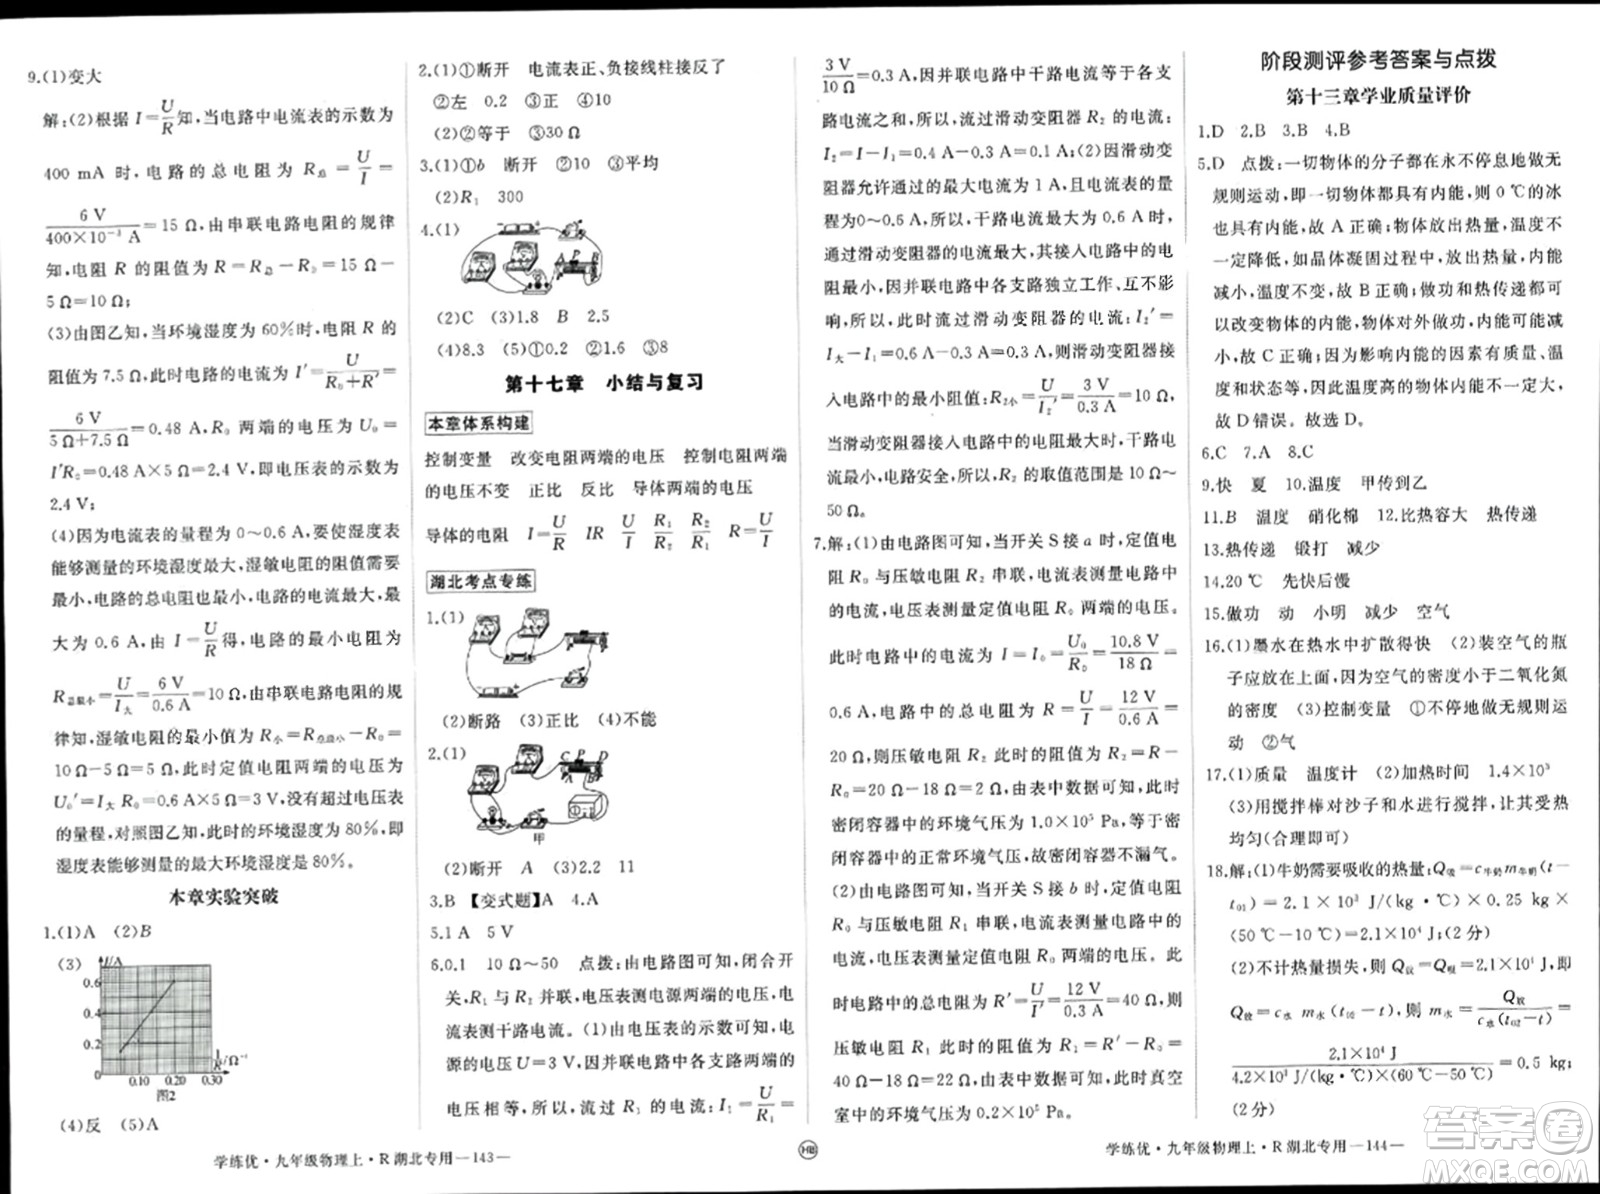 9.(1)变大
解:(2)根据 I=U/R 知,当电路中电流表的示数为
400 mA 时,电路的总电阻为 R总=U/I=
6 V/(400×10⁻³ A)=15 Ω,由串联电路电阻的规律
知,电阻 R 的阻值为 R=R总−R₀=15 Ω−
5 Ω=10 Ω;
(3)由图乙知,当环境湿度为 60%时,电阻 R 的
阻值为 7.5 Ω,此时电路的电流为 I′=U/(R₀+R′)=
6 V/(5 Ω+7.5 Ω)=0.48 A,R₀ 两端的电压为 U₀=
I′R₀=0.48 A×5 Ω=2.4 V,即电压表的示数为
2.4 V;
(4)因为电流表的量程为 0~0.6 A,要使湿度表
能够测量的环境湿度最大,湿敏电阻的阻值需要
最小,电路的总电阻也最小,电路的电流最大,最
大为 0.6 A,由 I=U/R 得,电路的最小电阻为
R总最小=U/I大=6 V/0.6 A=10 Ω,由串联电路电阻的规
律知,湿敏电阻的最小值为 R小=R总最小−R₀=
10 Ω−5 Ω=5 Ω,此时定值电阻两端的电压为
U₀′=I大 R₀=0.6 A×5 Ω=3 V,没有超过电压表
的量程,对照图乙知,此时的环境湿度为 80%,即
湿度表能够测量的最大环境湿度是 80%。
本章实验突破
1.(1)A (2)B
(3)
I/A
0.6
0.4
0.2
0
0.10 0.20 0.30
1/R/Ω⁻¹
图2
(4)反 (5)A
学练优·九年级物理上·R 湖北专用—143—
2.(1)①断开 电流表正、负接线柱接反了
②左 0.2 ③正 ④10
(2)②等于 ③30 Ω
3.(1)①b 断开 ②10 ③平均
(2)R₁ 300
4.(1)
A P B
(2)C (3)1.8 B 2.5
(4)8.3 (5)①0.2 ②1.6 ③8
第十七章 小结与复习
本章体系构建
控制变量 改变电阻两端的电压 控制电阻两端
的电压不变 正比 反比 导体两端的电压
导体的电阻 I=U/R IR U/R R₁/R₂ R₂/R₁ R=U/I
湖北考点专练
1.(1)
(2)断路 (3)正比 (4)不能
2.(1)
C P D
A B
甲
(2)断开 A (3)2.2 11
3.B 【变式题】A 4.A
5.1 A 5 V
6.0.1 10 Ω~50 点拨:由电路图可知,闭合开
关,R₁ 与 R₂ 并联,电压表测电源两端的电压,电
流表测干路电流。(1)由电压表的示数可知,电
源的电压 U=3 V,因并联电路中各支路两端的
电压相等,所以,流过 R₁ 的电流:I₁=U/R₁=
HB
3 V/10 Ω=0.3 A,因并联电路中干路电流等于各支
路电流之和,所以,流过滑动变阻器 R₂ 的电流:
I₂=I−I₁=0.4 A−0.3 A=0.1 A;(2)因滑动变
阻器允许通过的最大电流为 1 A,电流表的量
程为0~0.6 A,所以,干路电流最大为 0.6 A 时,
通过滑动变阻器的电流最大,其接入电路中的电
阻最小,因并联电路中各支路独立工作、互不影
响,所以,此时流过滑动变阻器的电流:I₂′=
I大−I₁=0.6 A−0.3 A=0.3 A,则滑动变阻器接
入电路中的最小阻值:R₂小=U/I₂′=3 V/0.3 A=10 Ω,
当滑动变阻器接入电路中的电阻最大时,干路电
流最小,电路安全,所以,R₂ 的取值范围是 10 Ω~
50 Ω。
7.解:(1)由电路图可知,当开关 S 接 a 时,定值电
阻 R₀ 与压敏电阻 R₂ 串联,电流表测量电路中
的电流,电压表测量定值电阻 R₀ 两端的电压。
此时电路中的电流为 I=I₀=U₀/R₀=10.8 V/18 Ω=
0.6 A,电路中的总电阻为 R=U/I=12 V/0.6 A=
20 Ω,则压敏电阻 R₂ 此时的阻值为 R₂=R−
R₀=20 Ω−18 Ω=2 Ω,由表中数据可知,此时
密闭容器中的环境气压为 1.0×10⁵ Pa,等于密
闭容器中的正常环境气压,故密闭容器不漏气。
(2)由电路图可知,当开关 S 接 b 时,定值电阻
R₀ 与压敏电阻 R₁ 串联,电流表测量电路中的
电流,电压表测量定值电阻 R₀ 两端的电压。此
时电路中的总电阻为 R′=U/I′=12 V/0.3 A=40 Ω,则
压敏电阻 R₁ 此时的阻值为 R₁=R′−R₀=
40 Ω−18 Ω=22 Ω,由表中数据可知,此时真空
室中的环境气压为 0.2×10⁵ Pa。
阶段测评参考答案与点拨
第十三章学业质量评价
1.D 2.B 3.B 4.B
5.D 点拨:一切物体的分子都在永不停息地做无
规则运动,即一切物体都具有内能,则 0 ℃的冰
也具有内能,故 A 正确;物体放出热量,温度不
一定降低,如晶体凝固过程中,放出热量,内能
减小,温度不变,故 B 正确;做功和热传递都可
以改变物体的内能,物体对外做功,内能可能减
小,故 C 正确;因为影响内能的因素有质量、温
度和状态等,因此温度高的物体内能不一定大,
故 D 错误。故选 D。
6.C 7.A 8.C
9.快 夏 10.温度 甲传到乙
11.B 温度 硝化棉 12.比热容大 热传递
13.热传递 锻打 减少
14.20 ℃ 先快后慢
15.做功 动 小明 减少 空气
16.(1)墨水在热水中扩散得快 (2)装空气的瓶
子应放在上面,因为空气的密度小于二氧化氮
的密度 (3)控制变量 ①不停地做无规则运
动 ②气
17.(1)质量 温度计 (2)加热时间 1.4×10³
(3)用搅拌棒对沙子和水进行搅拌,让其受热
均匀(合理即可)
18.解:(1)牛奶需要吸收的热量:Q吸=c牛奶 m牛奶(t−
t₀₁)=2.1×10³ J/(kg·℃)×0.25 kg×
(50 ℃−10 ℃)=2.1×10⁴ J;(2 分)
(2)不计热量损失,则 Q放=Q吸=2.1×10⁴ J,由
Q放=c水 m水(t₀₂−t),则 m水=Q放/(c水(t₀₂−t))=
2.1×10⁴ J/(4.2×10³ J/(kg·℃)×(60 ℃−50 ℃))=0.5 kg。
(2 分)
学练优·九年级物理上·R 湖北专用—144—
作业精灵
MXQE.COM